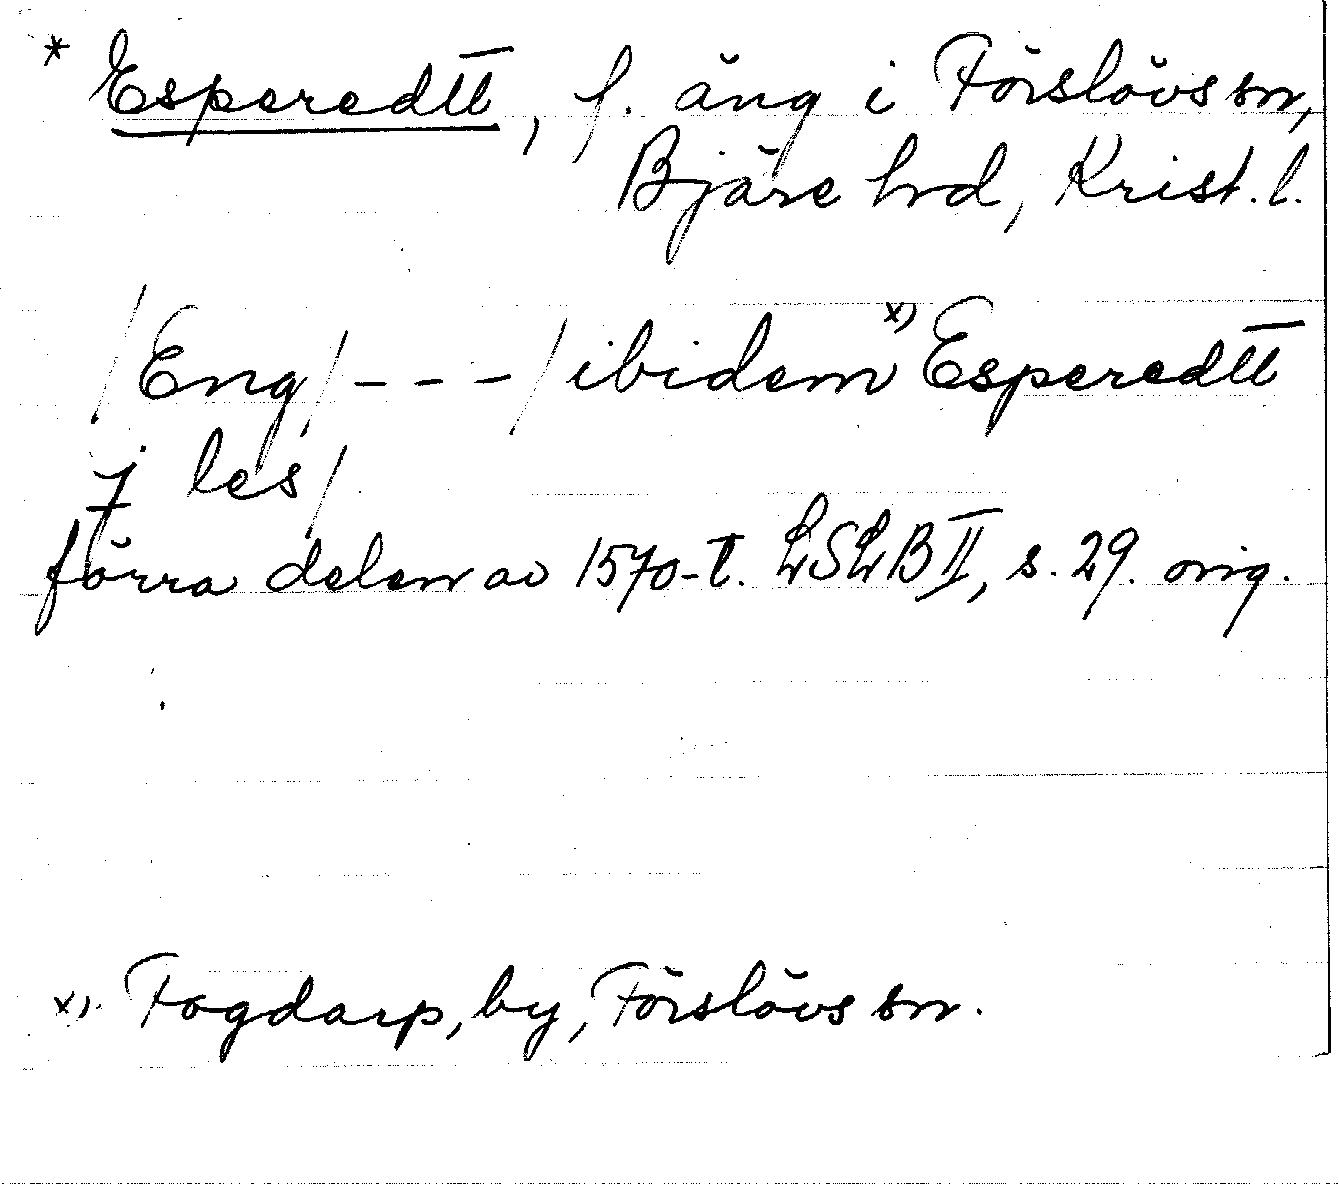 * Esperedtt̅, f. äng i Förslövs sn,
Bjäre hrd, Krist. l.
/Eng/ - - - /ibidem x) Esperedtt̅
j les/
förra delen av 1570-t. LSLB II, s. 29. orig.
x). Fogdarp, by, Förslövs sn.